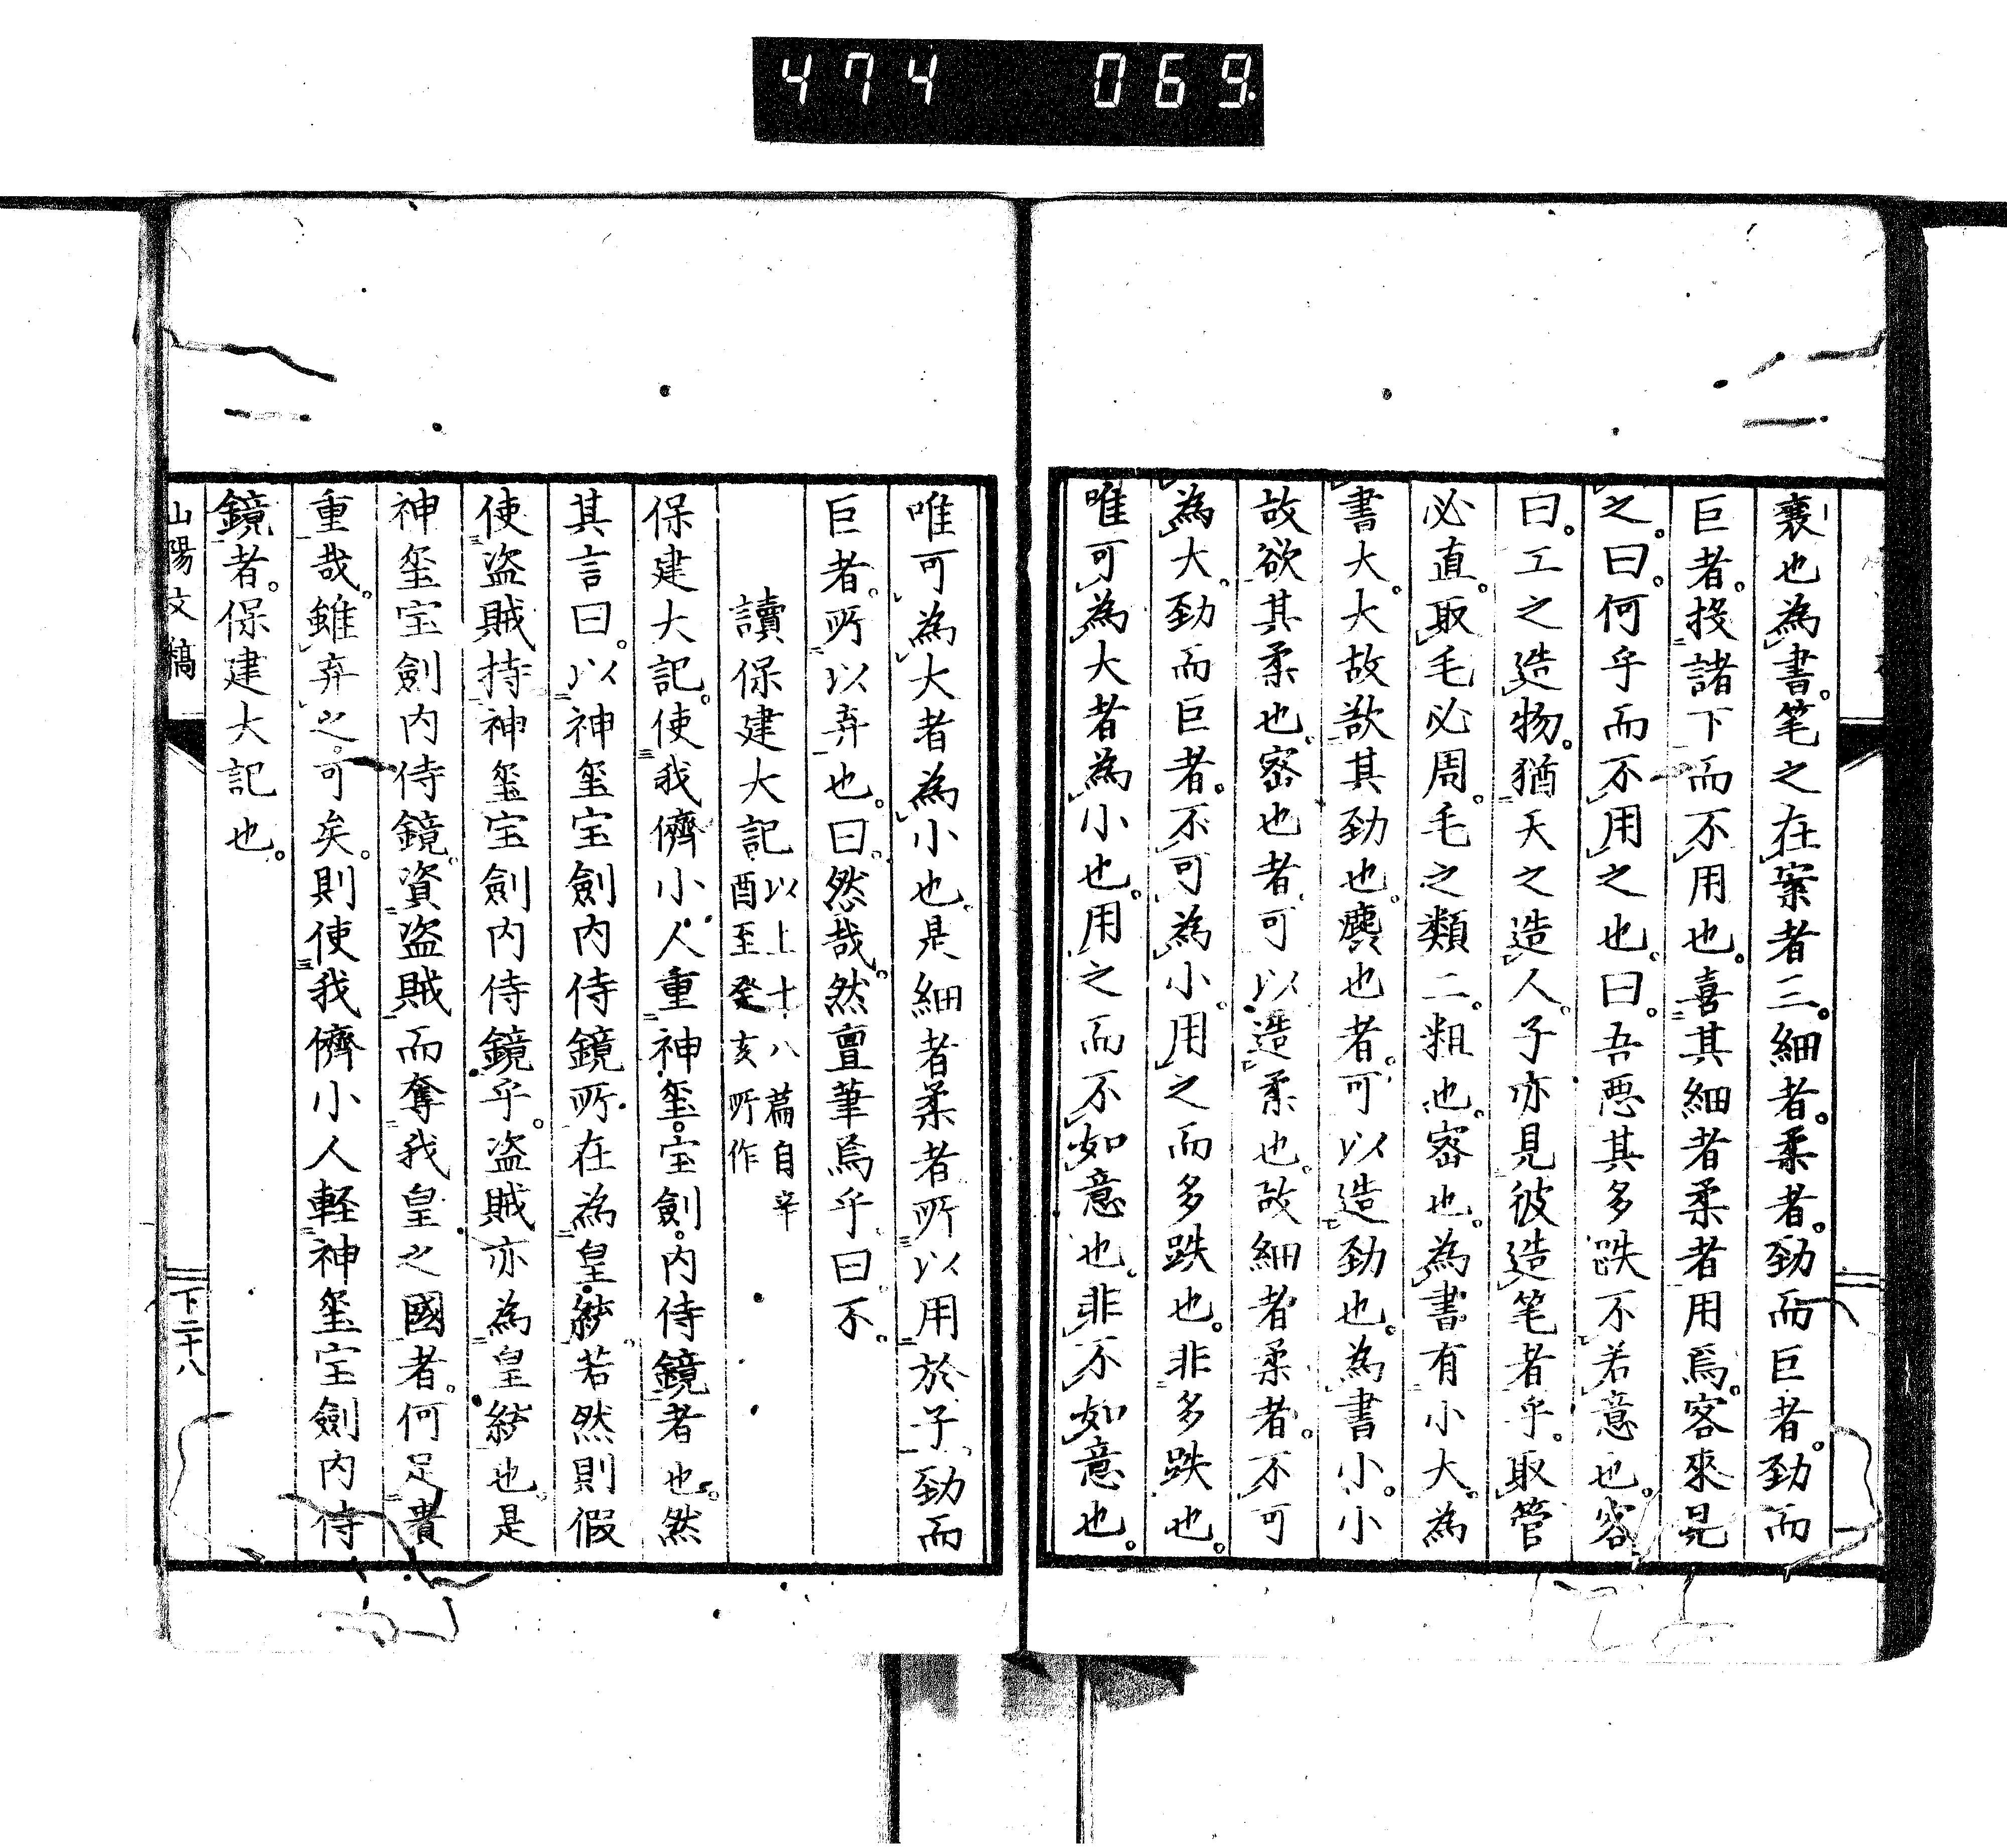 474 069
襄也為書。笔之在案者三。細者。柔者。勁而巨者。勁而
巨者。投諸下而不用也。喜其細者柔者用焉。客來見
之。曰。何乎而不用之也。曰。吾悪其多跌不若意也。客
曰。工之造物。猶天之造人。子亦見彼造笔者乎。取管
必直。取毛必周。毛之類二。粗也。密也。為書有小大。為
書大。大故欲其勁也。麁也者。可以造勁也。為書小。小
故欲其柔也。密也者。可以造柔也。故細者柔者。不可
為大。勁而巨者。不可為小。用之而多跌也。非多跌也。
唯可為大者為小也。用之而不如意也。非不如意也。
唯可為大者為小也。是細者柔者所以用於子。勁而
巨者。所以弃也。曰。然哉。然亶筆焉乎。曰。不。
讀保建大記以上十八篇自辛
酉至癸亥所作
保建大記。使我儕小人重神璽。宝劍。内侍鏡者也。然
其言曰。以神璽宝劍内侍鏡所在為皇統。若然則假
使盗賊持神璽宝劍内侍鏡乎。盗賊亦為皇統也。是
神璽宝劍内侍鏡。資盗賊而奪我皇之國者。何足貴
重哉。雖弃之。可矣。則使我儕小人軽神璽宝劍内侍
鏡者。保建大記也。
山陽文稿
下二十八